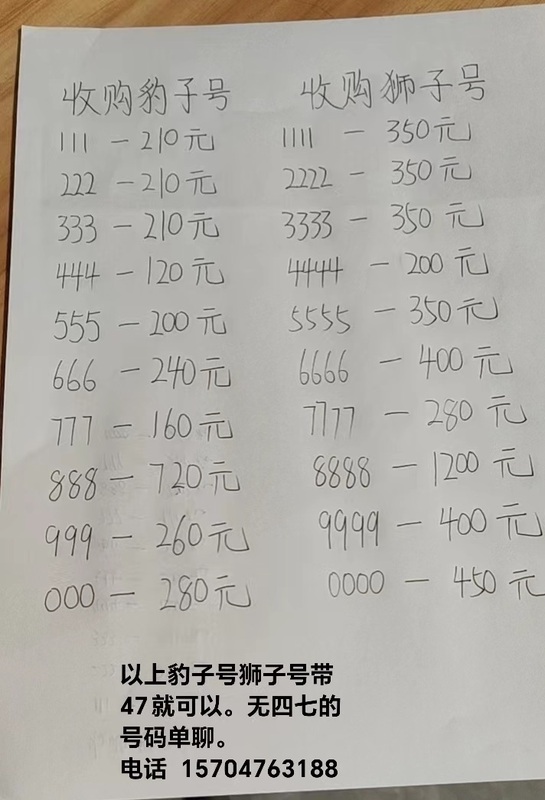 收购豹子号 收购狮子号
111 — 210元 1111 — 350元
222 — 210元 2222 — 350元
333 — 210元 3333 — 350元
444 — 120元 4444 — 200元
555 — 200元 5555 — 350元
666 — 240元 6666 — 400元
777 — 160元 7777 — 280元
888 — 720元 8888 — 1200元
999 — 260元 9999 — 400元
000 — 280元 0000 — 450元
以上豹子号狮子号带
47就可以。无四七的
号码单聊。
电话 15704763188